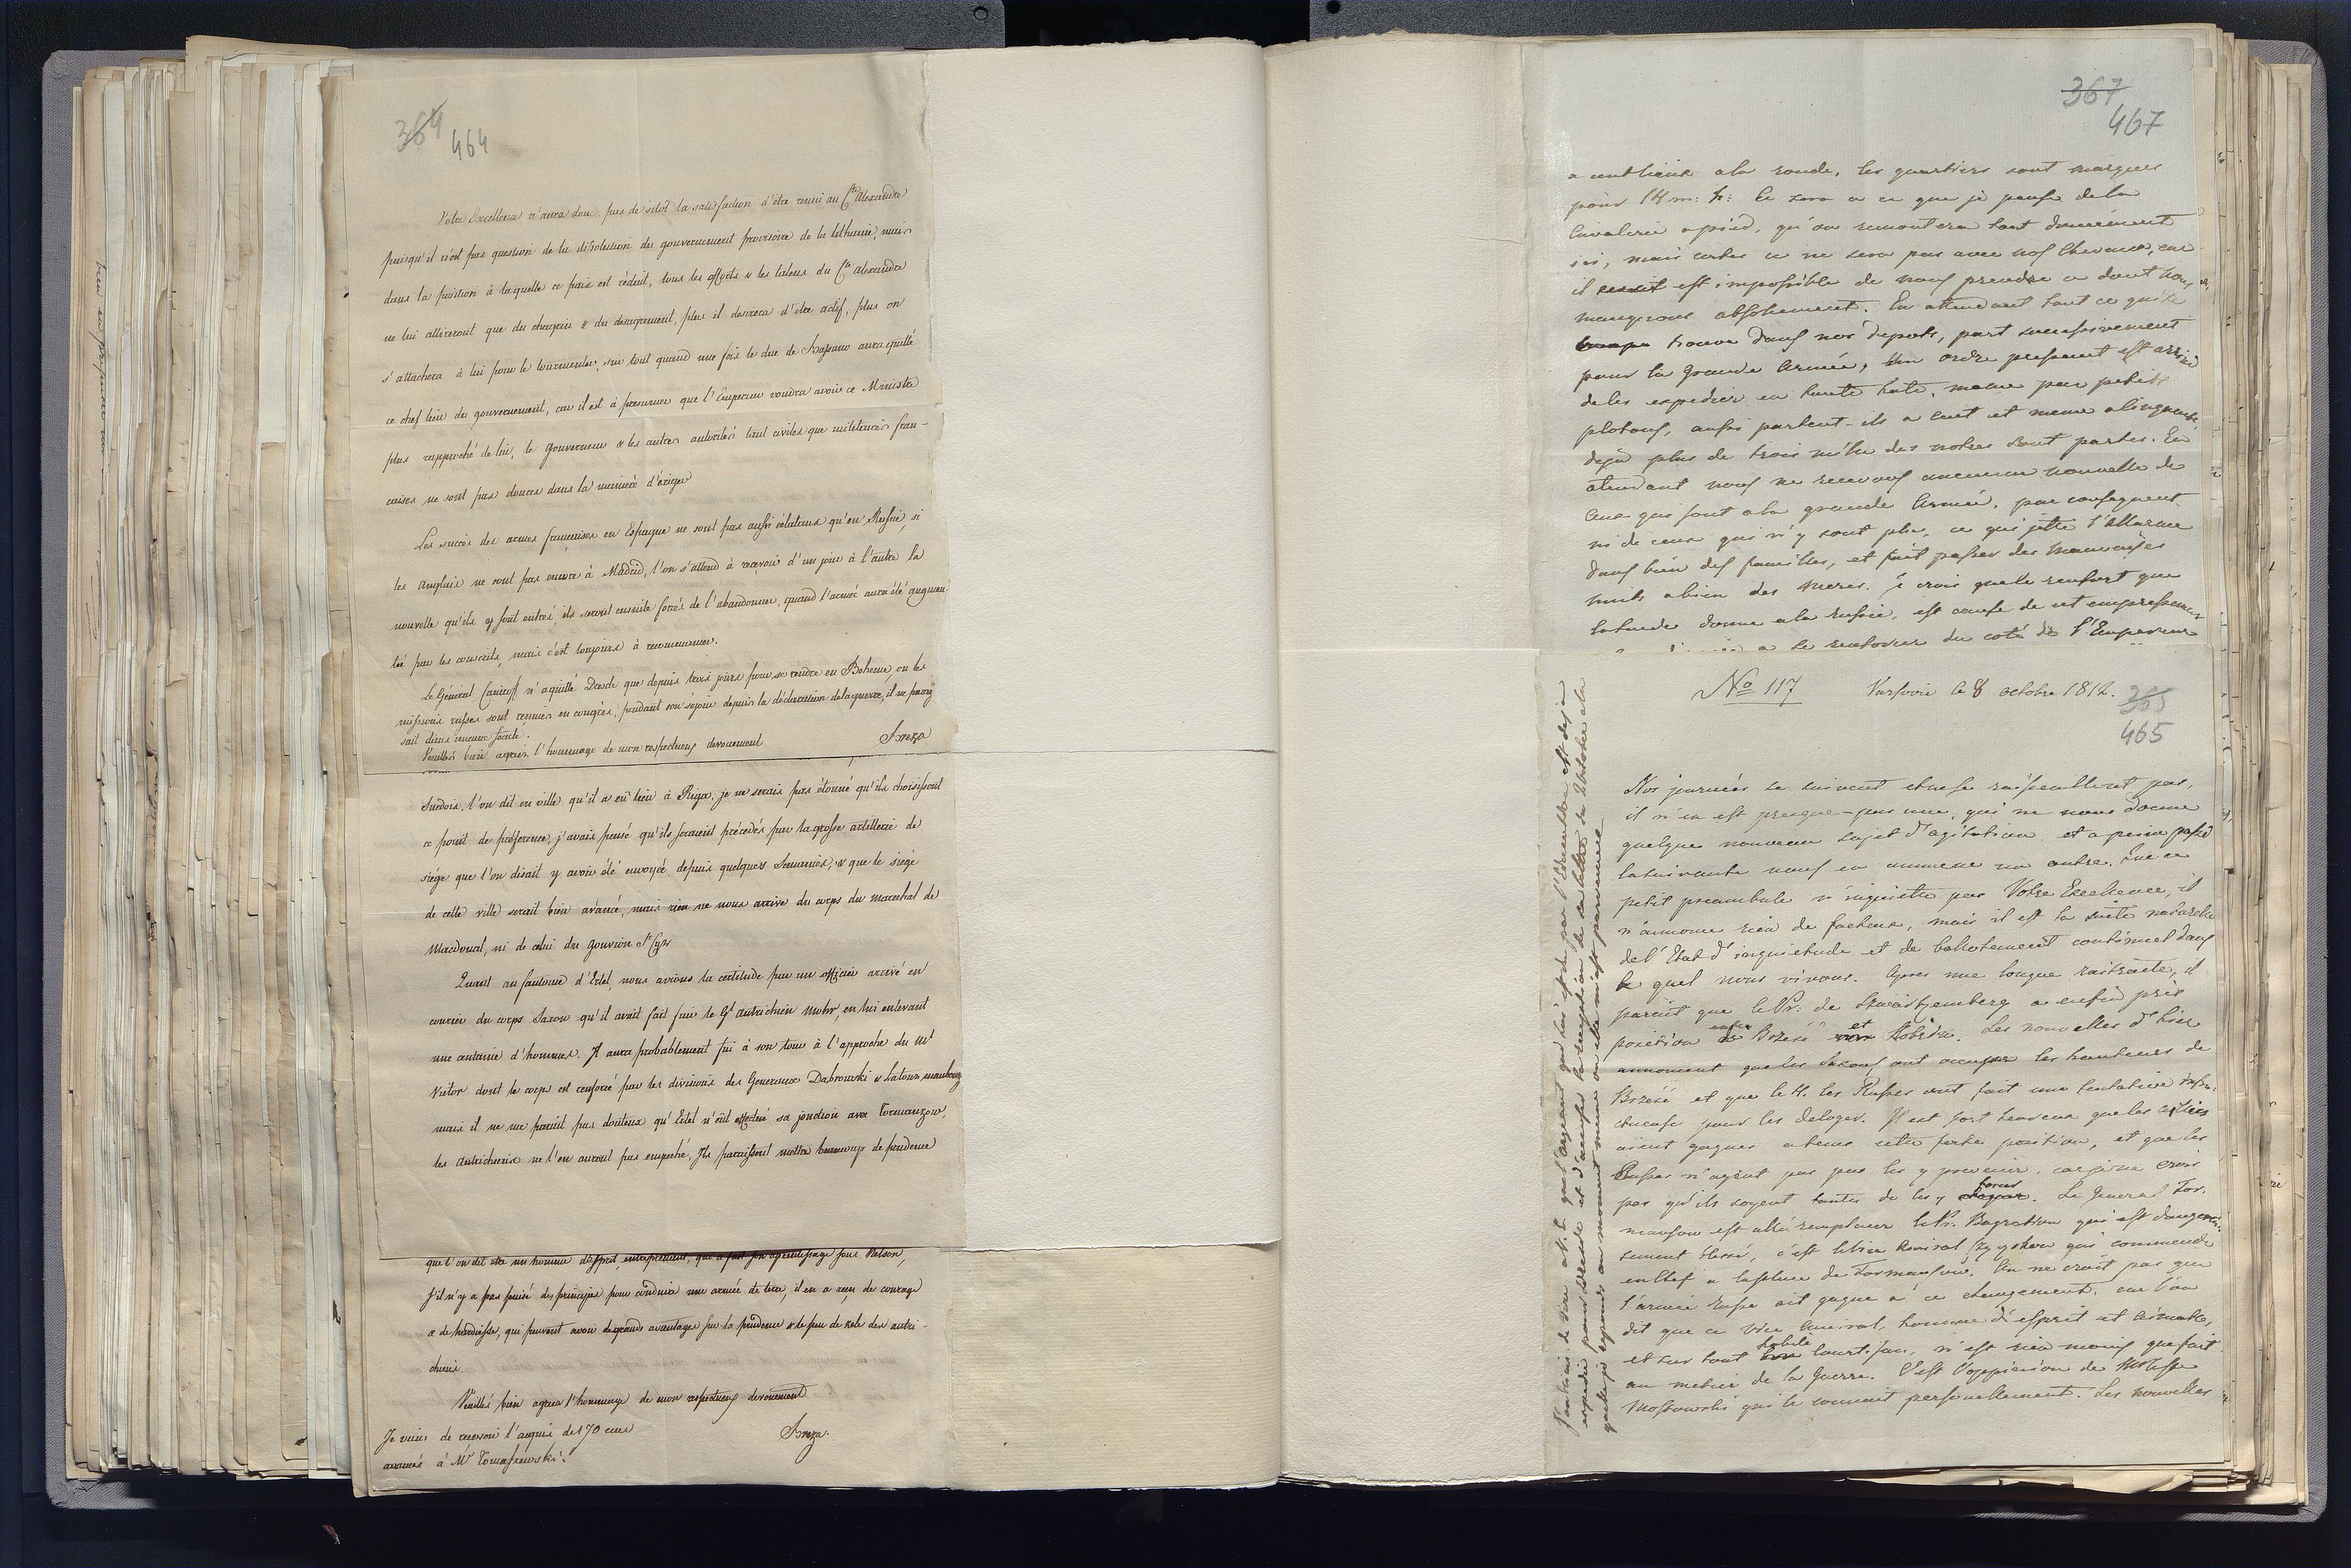 364 464
Votre Excellence n'aura donc pas de sitôt la satisfaction d'être reuni au Cte Alexandre
puisqu'il n'est pas question de la dissolution du gouvernement provisoire de la Lithuanie, mais
dans la position à laquelle ce pais est réduit, tous les efforts & les talens du Cte Alexandre
ne lui attireront que du chagrin & du desagrement, plus il desirera d'être actif, plus on
s'attachera à lui pour le tourmenter, sur tout quand une fois le duc de Bassano aura quitté
ce chef lieu du gouvernement, car il est à presumer que l'Empereur voudra avoir ce Ministre
plus rapproché de lui, le gouverneur & les autres autorités tant civiles que militaires fran-
caises ne sont pas douces dans la manière d'exiger
Les succès des armes françaises en Espagne ne sont pas aussi éclatans qu'en Russie, si
les Anglais ne sont pas encore à Madrid, l'on s'attend à recevoir d'un jour à l'autre la
nouvelle qu'ils y sont entrés, ils seront ensuite forcés de l'abandonner, quand l'armée aura été augmen
tée par les conscrits, mais c'est toujours à recommencer.
Le Général Canicoff n'a quitté Dresde que depuis trois jours pour se rendre en Boheme, où les
missions russes sont reunies en congrès, pendant son séjour depuis la déclaration de la guerre, il ne parais
sait dans aucune société.
Veuillés bien agréer l'hommage de mon respectueux devouement
Breza
Suedois, l'on dit en ville qu'il a eu lieu à Riga, je ne serais pas étonné qu'ils choisissent
ce point de préference, j'avais pensé qu'ils seraient précedés par la grosse artillerie de
siége que l'on disait y avoir été envoyée depuis quelques semaines, & que le siége
de cette ville serait bien avancé, mais rien ne nous arrive du corps du marechal de
Macdonal, ni de celui du Gouvion St Cyr
Quant au fantome d'Ertel, nous avions la certitude par un officier arrivé en
courier du corps Saxon qu'il avait fait fuir le Gl autrichien Mohr, en lui enlevant
une centaine d'hommes. Il aura probablement fui à son tour à l'approche du Ml
Victor dont le corps est renforcé par les divisions des Generaux Dabrowski & Latour maubourg
mais il ne me parait pas douteux qu'Ertel n'eût effectué sa jonction avec Tormanzow,
les Autrichiens ne l'en auront pas empeché. Ils paraissent mettre beaucoup de prudence
que l'on dit etre un homme d'esprit, entreprenant, qui a fait son aprentissage sous Nelson,
s'il n'y a pas puisé des principes pour conduire une armée de terre, il en a reçu de courage
& de hardiesse, qui peuvent avoir de grands avantages sur la prudence & le peu de zele des autri-
chiens.
Veuillés bien agréer l'hommage de mon respectueux devouement
Breza.
Je viens de recevoir l'acquis de 170 ecus
avancés à Mr Tomaszewski.
367
467
a cent lieux a la ronde, les quartiers sont marqués
pour 14 m: h: Ce sera a ce que je pense de la
Cavalerie a pied, qu'on remontera tout doucement
ici, mais certes ce ne sera pas avec nos chevaux, car
il est impossible de nous prendre ce dont nous
manquons absolument. En attendant tout ce qui se
trouve dans nos depots, part successivement
pour la grande Armée, Un ordre pressant est arrivé
de les expedier en toute hate, meme par petits
plotons, aussi partent-ils a cent et meme a cinquante,
deja plus de trois mille des notres sont partis. En
attendant nous ne recevons aucune nouvelle de
ceux qui sont a la grande Armée, par consequent
ni de ceux qui n'y sont plus, ce qui jette l'allarme
dans bien des familles, et fait passer des mauvaises
nuits a bien des meres. je crois que le renfort que
la Suede donne a la Russie, est cause de cet empressement
a se renforcer du coté de l'Empereur
No 117 Varsovie le 8 octobre 1812. 365
465
Nos journées se suivent et ne se ressemblent pas,
il n'en est presque-pas une, qui ne nous donne
quelque nouveau sujet d'agitation et a peine passé
la suivante nous en ammene un autre. Que ce
petit preambule n'inquiette pas Votre Excellence, il
n'annonce rien de facheux, mais il est la suite naturelle
de l'Etat d'inquietude et de balotement continuel dans
le quel nous vivons. Apres une longue retraite, il
parait que le Pr: de Schwartzemberg a enfin pris
position entre Brzesć et Kobryn. Les nouvelles d'hier
annoncent que les Saxons ont occupé les hauteurs de
Brzesć et que le 4. les Russes ont fait une tentative infru-
ctueuse pour les deloger. Il est fort heureux que les notres
aient gagné a tems cette forte position, et que les
Russes n'ayent pas pus les y prevenir, car je ne crois
pas qu'ils soyent tentés de les y forcer. Le General Tor-
mansow est allé remplacer le Pr. Bagration qui est dangereu-
sement blessé, c'est le Vice Amiral Czyczakow qui commende
en Chef a la place de Tormansow. On ne croit pas que
l'armée Russe ait gagné a ce changement, car l'on
dit que ce Vice Amiral, homme d'esprit et aimable,
et sur tout habile Courtisan, n'est rien moins que fait
au metier de la Guerre. C'est l'oppinion de Mr le Cte
Mostowski qui le connait personellement. Les nouvelles